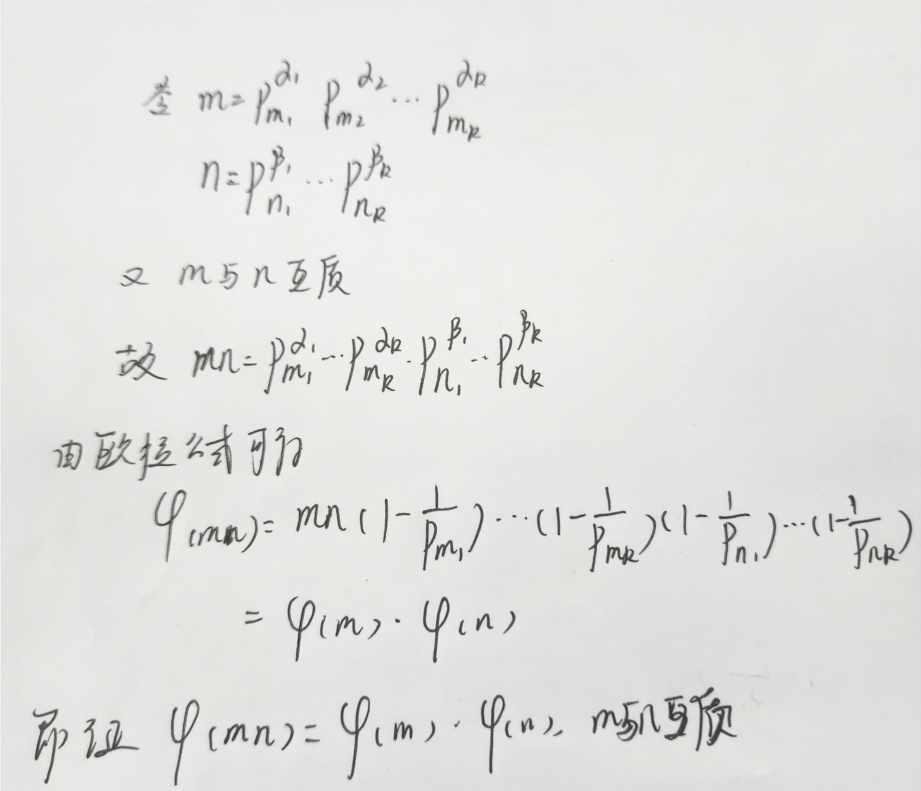 若 m=p_{m_1}^{α_1} p_{m_2}^{α_2} ⋯ p_{m_k}^{α_k}
n=p_{n_1}^{β_1} ⋯ p_{n_k}^{β_k}
又 m与n互质
故 mn=p_{m_1}^{α_1} ⋯ p_{m_k}^{α_k} · p_{n_1}^{β_1} ⋯ p_{n_k}^{β_k}
由欧拉公式可得
φ(mn)=mn(1-\frac{1}{p_{m_1}})⋯(1-\frac{1}{p_{m_k}})(1-\frac{1}{p_{n_1}})⋯(1-\frac{1}{p_{n_k}})
=φ(m)·φ(n)
即证 φ(mn)=φ(m)·φ(n), m与n互质